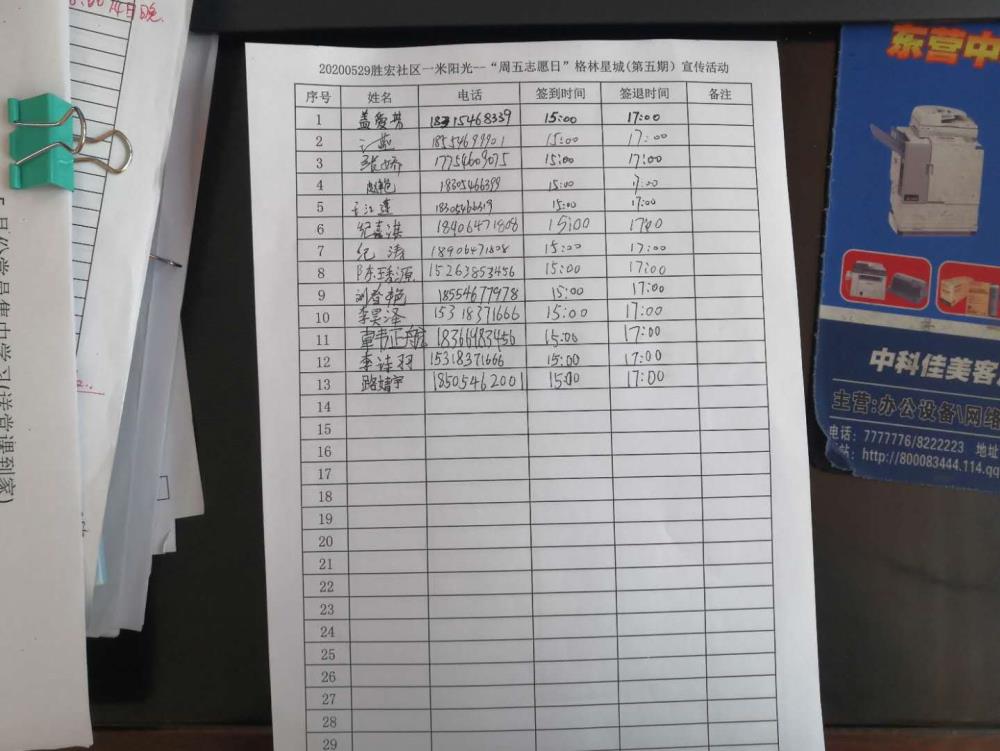 20200529胜宏社区一米阳光--“周五志愿日”格林星城(第五期)宣传活动
序号 姓名 电话 签到时间 签退时间 备注
1 盖爱芳 15:00 17:00
2 18554699901 15:00 17:00
3 张娇 17754609075 15:00 17:00
4 18305466399 15:00 17:00
5 王江莲 18305466319 15:00 17:00
6 纪嘉淇 18906471808 15:00 1700
7 纪涛 18906471808 15:00 17:00
8 陈 源 15263853456 15:00 17:00
9 刘春艳 18554677978 15:00 17:00
10 李昊泽 15318371666 15:00 17:00
11 15:00 17:00
12 李诗羽 15318371666 15:00 17:00
13 路婧宇 18505462001 15:00 17:00
14
15
16
17
18
19
20
21
22
23
24
25
26
27
28
29
14日晚
员集中学习(送党课到家)
东营中
中科佳美客
主营:办公设备\网络
电话: 7777776/8222223 地址
http://800083444.114.qq